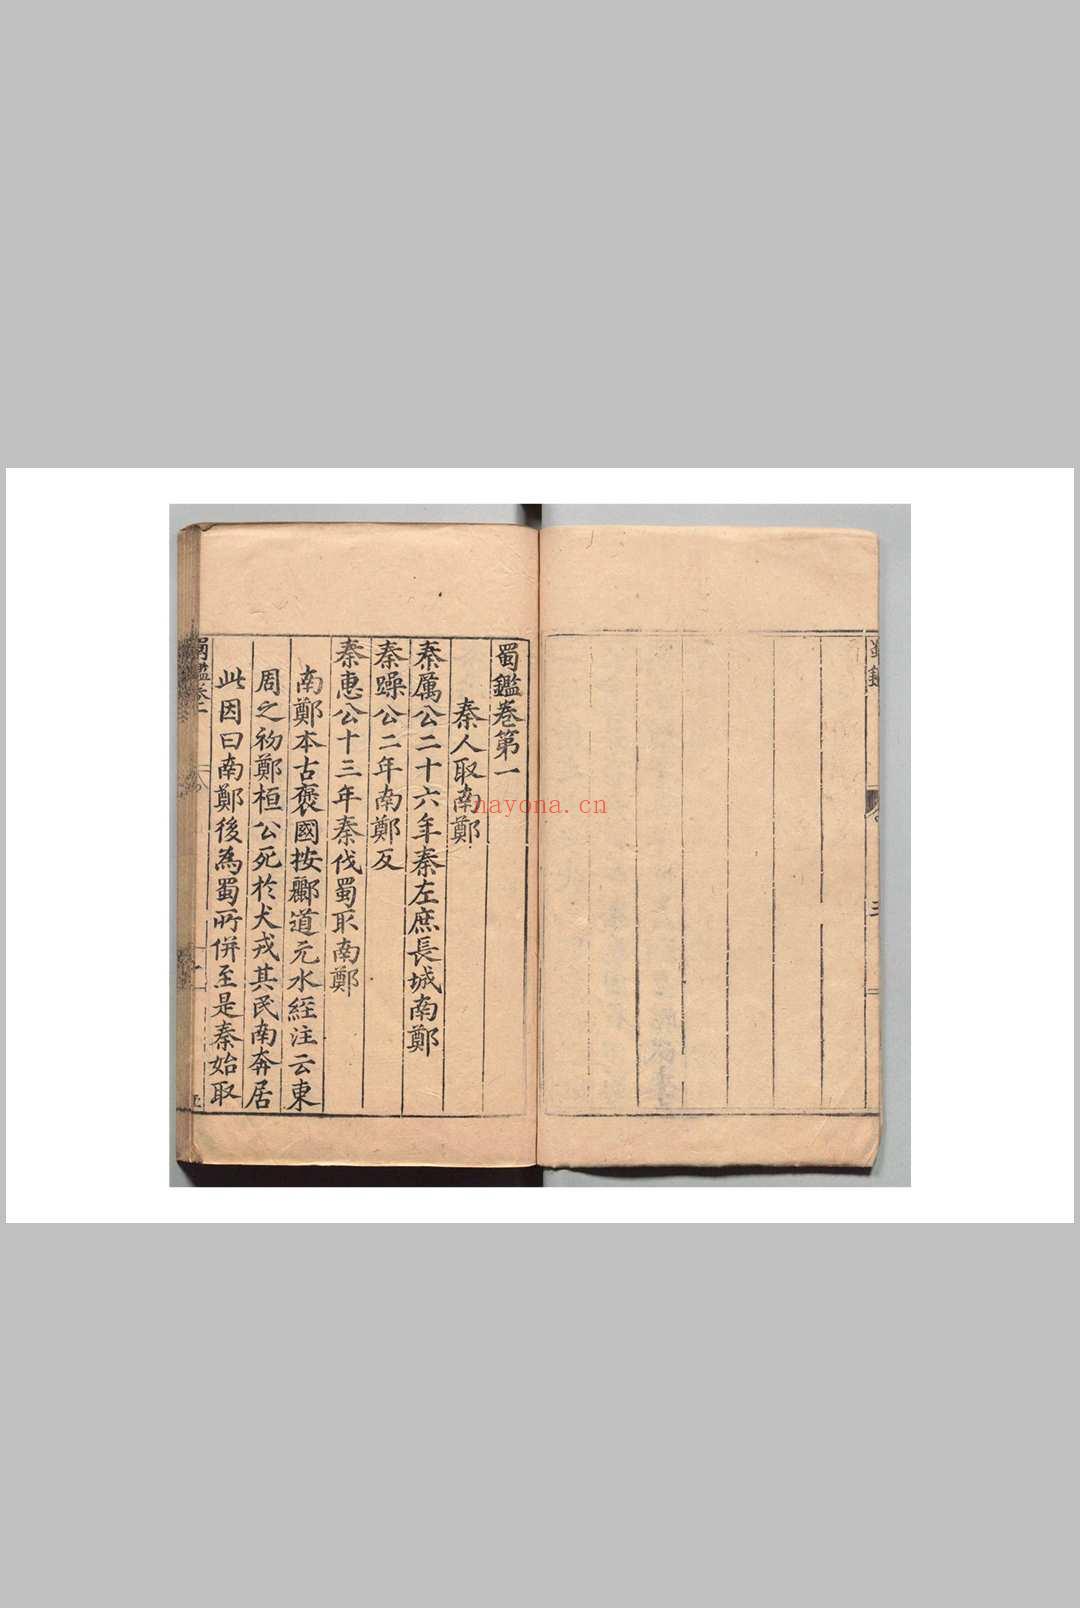 蜀鑑卷第一
秦人取南鄭
秦厲公二十六年秦左庶長城南鄭
秦躁公二年南鄭反
秦惠公十三年秦伐蜀取南鄭
南鄭本古褒國按酈道元水經注云東
周之初鄭桓公死於犬戎其民南奔居
此因曰南鄭後為蜀所併至是秦始取
蜀鑑卷一
蜀鑑
三
nayona.cn